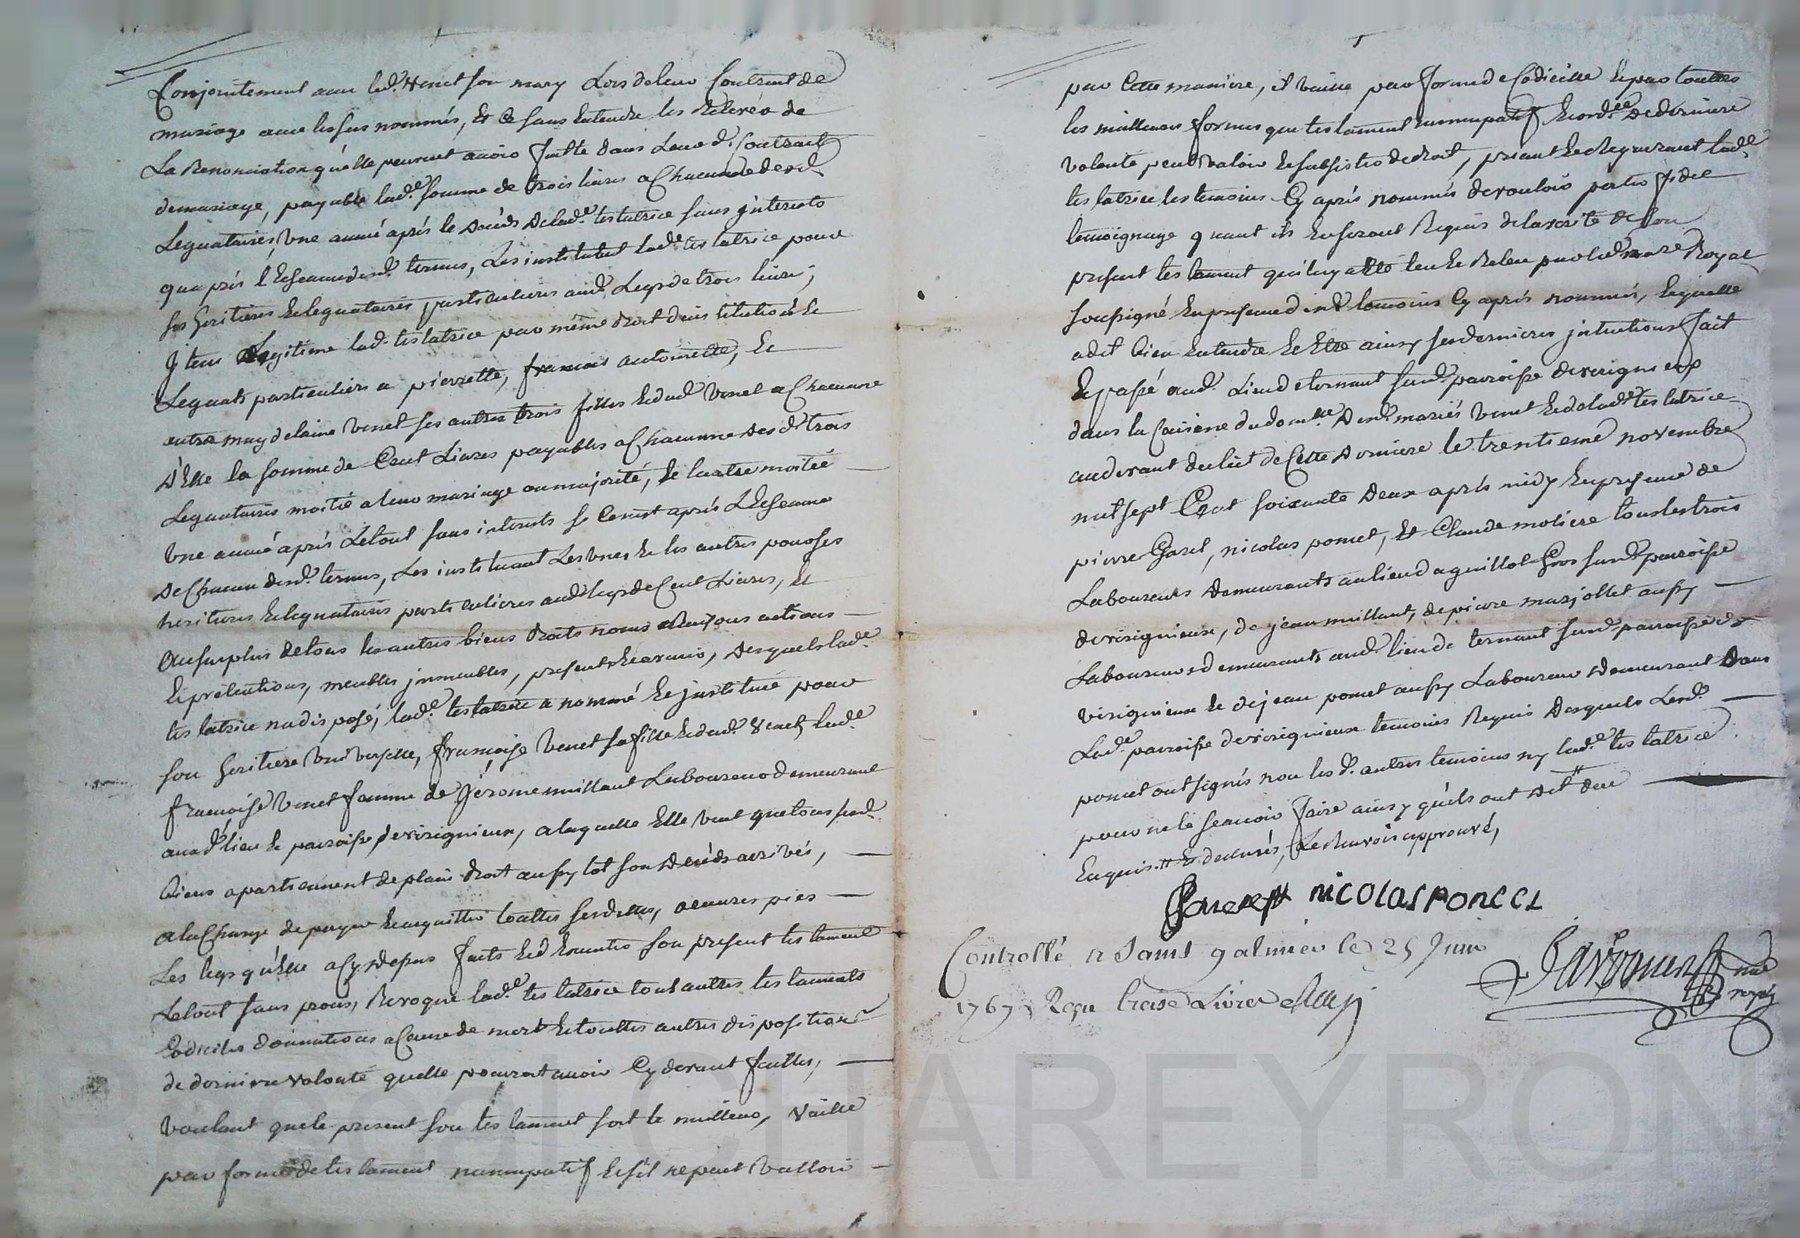 Conjointement avec led. Venet son mary Lors de leur Contract de
mariage avec les sus nommés, Et Ce sans Entendre les Relever de
La Renonciation qu'elle peuvent avoir faitte dans Leurd. Contract
de mariage, payable lad.e somme de trois livres a Chacune desd.
Leguataires Une année aprés le Décéds de lad.e testatrice sans jnterets
qu'aprés l'Echeance dud. terme, Les instituant lad.e testatrice pour
ses heritieres Et leguataires particulieres aud. Legs de trois livres;
Jtem Legitime lad. testatrice par même droit d'institution Et
Leguats particuliers a pierrette, francois antoinette, Et
autre magdelaine Venet ses autres trois filles Et dud. Venet a Chacune
d'Elle la somme de Cent Livres payables a Chacunne desd. trois
Leguataires moitié a leur mariage ou majorité, Et lautre moitié
Une année aprés Letout sans interets si Cenest aprés L'Echeance
de Chacun desd. termes, Les instituant Les unes Et les autres pour ses
heritieres Et leguataires particulieres aud. legs de Cent Livres, Et
Au surplus de tous les autres biens droits noms Raisons actions
Et prétentions, meubles jmmeubles, presents Et avenir, desquels lad.e
testatrice na disposé, lad.e testatrice a nommé Et jnstitué pour
son heritiere Universelle, françoise Venet sa fille Et dud. Venet, lad.e
françoise Venet femme de Jérome millant Laboureur demeurant
aud. lieu Et parroisse de virignieux, a laquelle Elle veut que tous sesd.
biens apartiennent de plain droit aussytot son Décéds arrivés,
a la Charge de payer Et acquitter touttes ses dettes, oeuvres pies
Les legs qu'Elle a Cy depus faits Et d'Executer son present testament
Letout sans procés, Revoque lad.e testatrice tout autres testaments
Codiciles donnations a Cause de mort Et touttes autres dispositions
de derniere volonté quelle pouroit avoir Cy devant faittes,
Voulant que le present son testament soit le meilleur, Vaille
par forme de testament nunncupatif Et s'il ne peut valloir
par Cette maniere, il vaille par forme de Codicille Et par touttes
les meilleures formes que testament nunncupatif Et ord.ce de derniere
volonté peut valoir Et subsister de droit, priant Et Requerant lad.e
testatrice les temoins Cy aprés nommés de vouloir porter fidele
temoignage quant ils En seront Requis de la verité de son
present testament qui luy a Eté leu Et Releu par led. no.re Royal
soussigné En presence desd. temoins Cy aprés nommés, Lequelle
a dit bien Entendre Et Etre ainsy ses dernieres jntentions fait
Et passé aud. Lieu de ternant susd. parroisse de virignieux
dans la Cuisine du dom.lle Desd. mariés Venet Et de lad.e testatrice
au devant du lict de Cette Derniere le trentieme novembre
mil sept Cent soixante Deux aprés midy En presence de
pierre Garel, nicolas poncet, Et Claude molière tous les trois
Laboureurs demeurants au lieu d'aguillot Gros susd. parroisse
de virignieux, de jean millant, de pierre marjollet aussy
Laboureurs demeurants aud. lieu de ternant susd. parroisse de
virignieux Et de jean poncet aussy Laboureur demeurant dans
Lad.e parroisse de virignieux temoins Requis Desquels Lesd.
poncet ont signés non les d. autres temoins ny lad.e testatrice
pour ne le scavoir faire ainsy qu'ils ont dit de ce
Enquis Et declarés, Le Renvoir approuvé,
Poncet NICOLAS PONCEt
Controllé a Saint galmier le 25 Juin
1767, Reçu treize Livres
no.re
royal
Pascal CHAREYRON